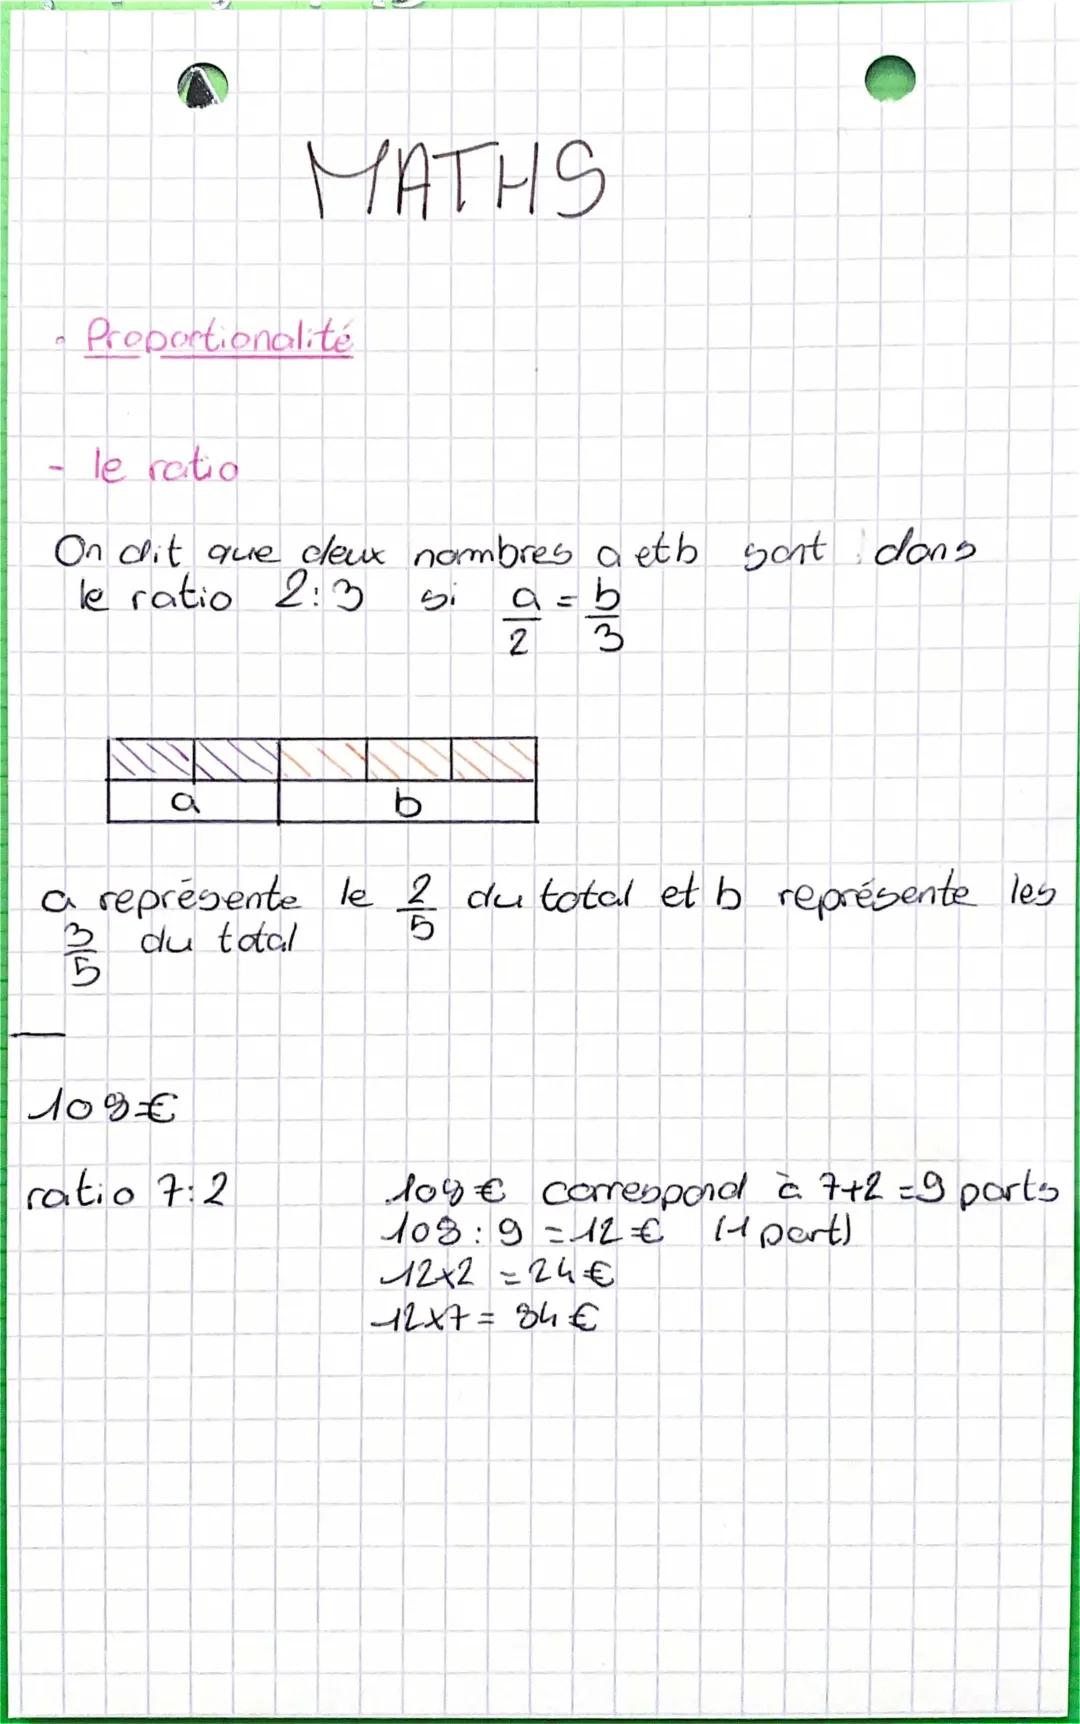 MATHS
• Proportionalité
- le ratio
On dit que deux nombres a et b sont dans
le ratio 2:3 si a/2 = b/3
a b
a représente le 2/5 du total et b représente les
3/5 du total
108€
ratio 7:2
108€ correspond à 7+2=9 parts
108:9=12€ (1 part)
12×2=24€
12×7=84€